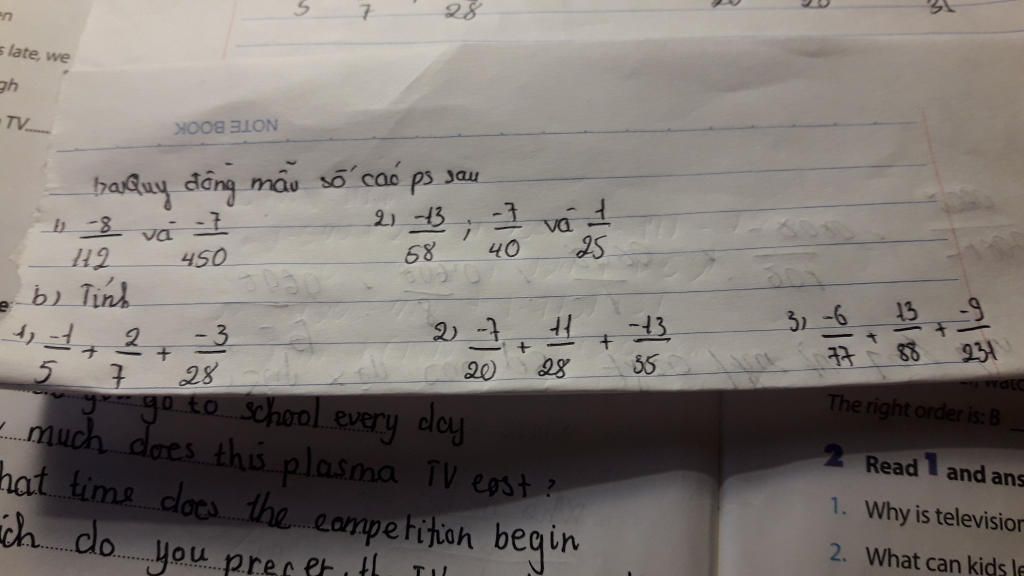 5 7 28 31
late, we
gh
TV
NOTE BOOK
Quy đồng mẫu số các ps sau
1) -8/112 và -7/450 2) -13/68 ; -7/40 và 1/25
b) Tính
1) -1/5 + 2/7 + -3/28 2) -7/20 + 11/28 + -13/35 3) -6/77 + 13/88 + -9/231
go to school every day
much does this plasma TV cost?
hat time does the competition begin
ich do you precer
TV
The right order is: B
2 Read 1 and ans
1. Why is television
2. What can kids le